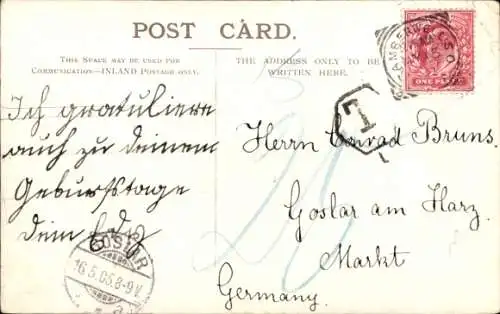 POST CARD.
THIS SPACE MAY BE USED FOR
COMMUNICATION—INLAND POSTAGE ONLY.
THE ADDRESS ONLY TO BE
WRITTEN HERE.
Ich gratuliere
auch zu deinem
Geburtstage
dein
GOSLAR
16.5.05.8-9V
CAMBERWELL S.O.
ONE PENNY
T
20
Herrn Conrad Bruns.
Goslar am Harz.
Markt
Germany.